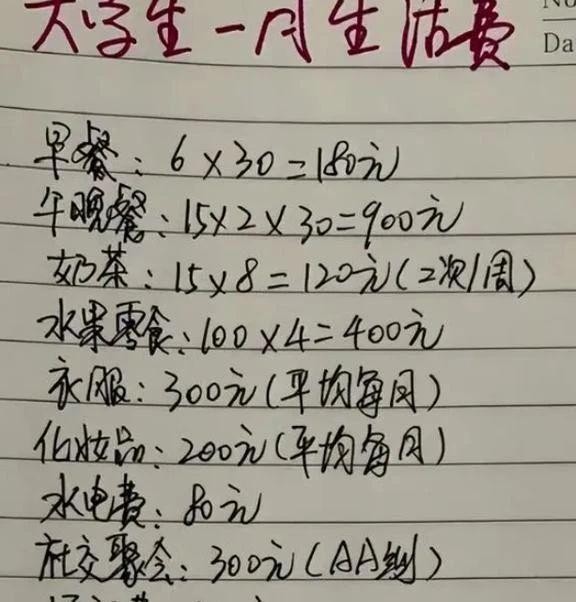 大学生一月生活费
Da
早餐：6×30=180元
午晚餐：15×2×30=900元
奶茶：15×8=120元(2次/周)
水果零食：100×4=400元
衣服：300元(平均每月)
化妆品：200元(平均每月)
水电费：80元
社交聚会：300元(AA制)